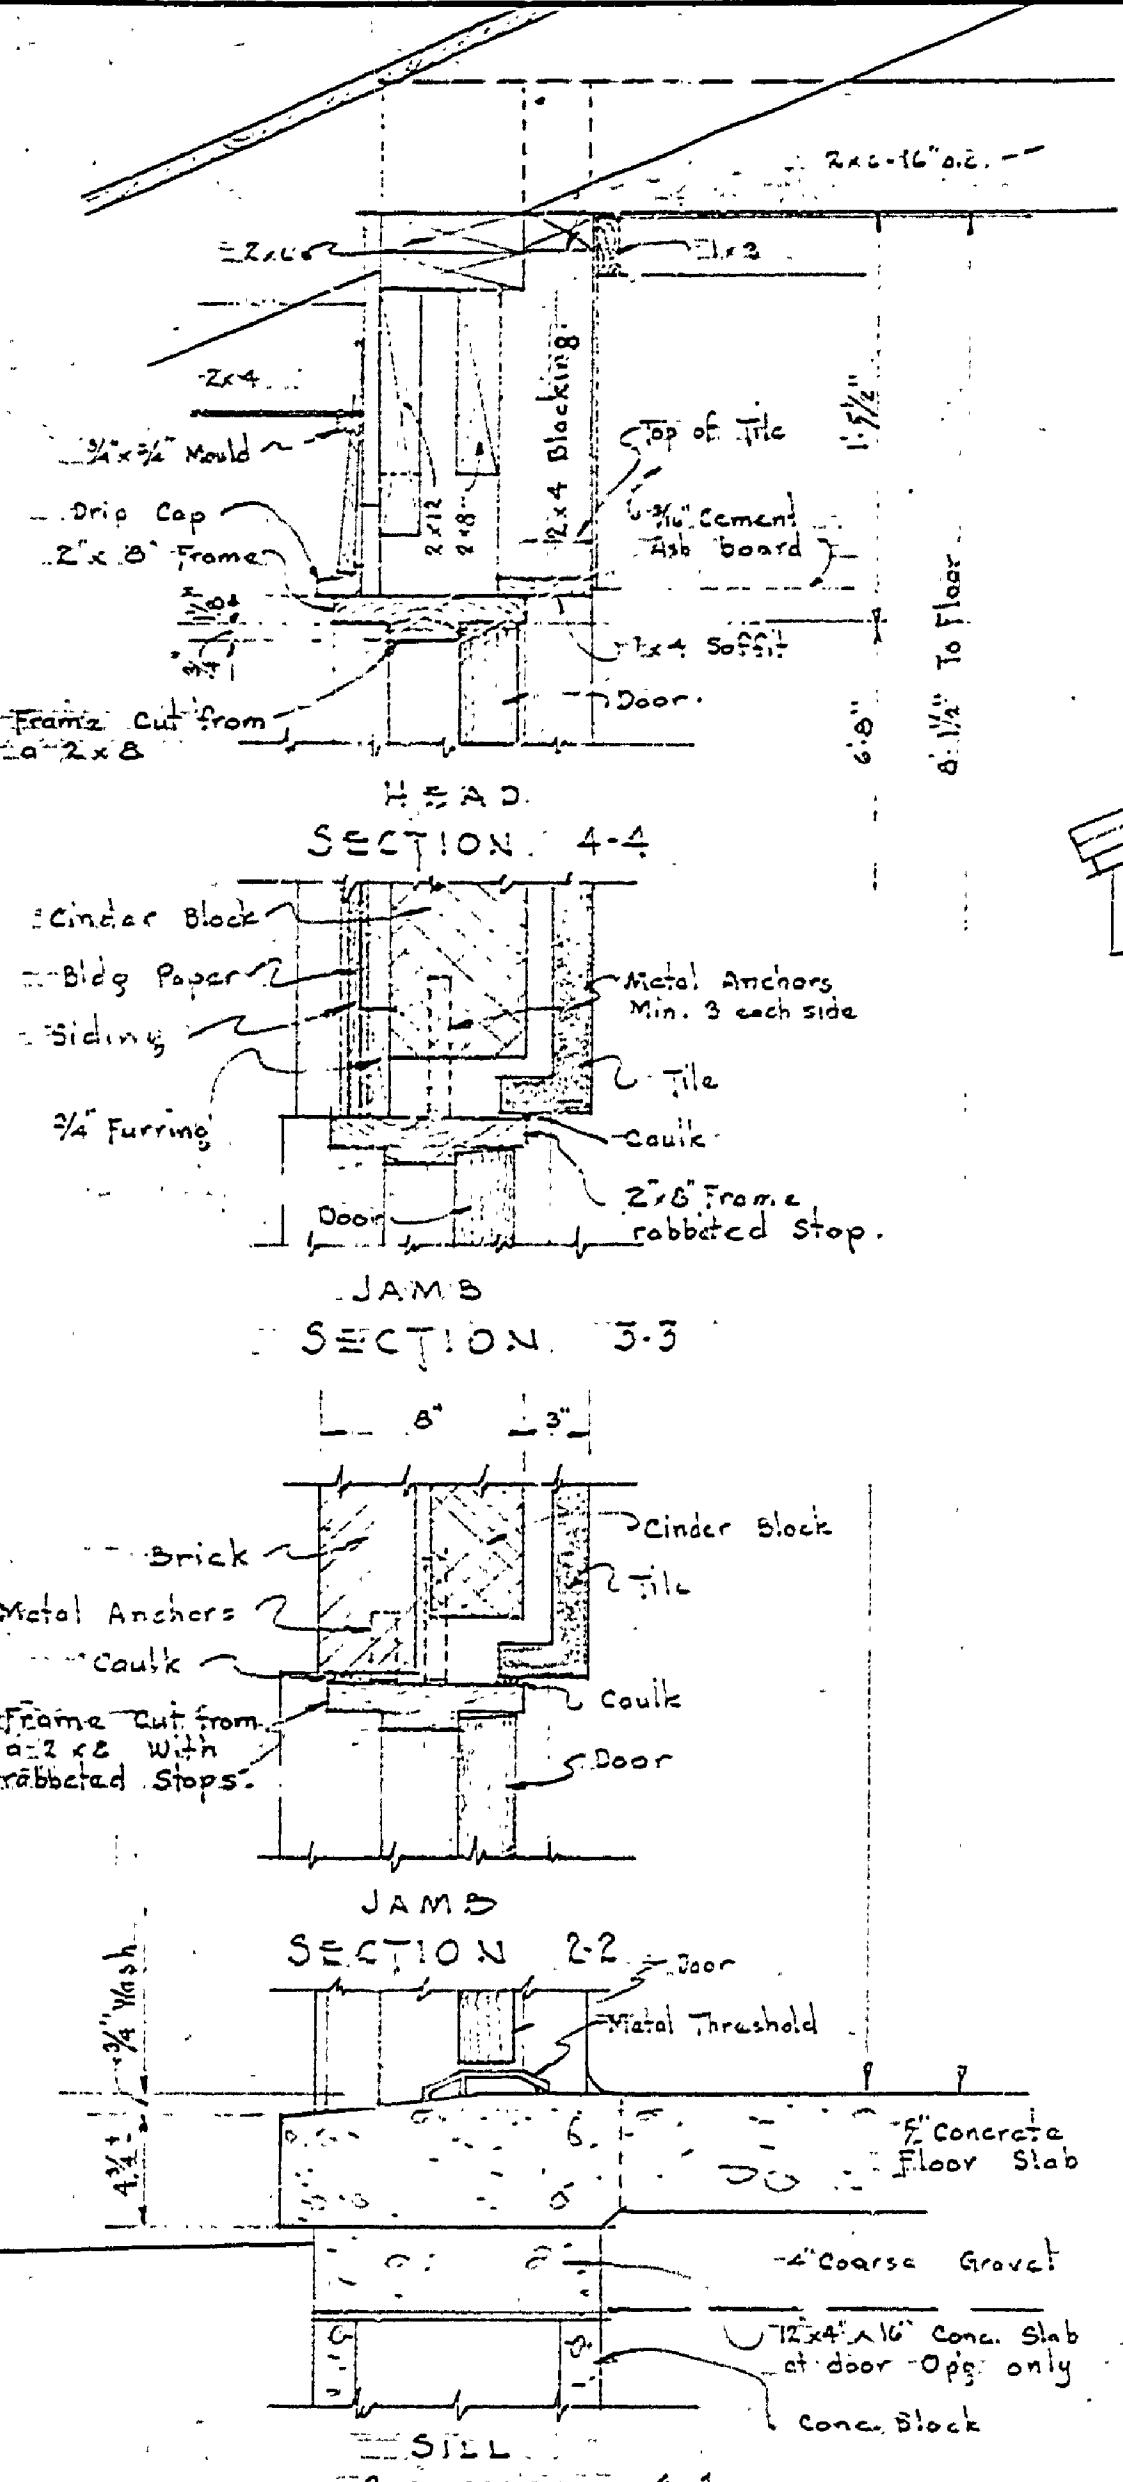 2x6-16" o.c.
1x3
2x4
3/4" x 3/4" Mould
Drip Cap
2" x 8" Frame
2x12
2x8
2x4 Blocking
8"
Top of Tile
3/16" Cement
Asb board
1'-5 1/2"
1x4 Soffit
Door
Frame Cut from
a 2x8
6'-8"
8'-1 1/2" To Floor
HEAD
SECTION 4-4
Cinder Block
Bldg Paper
Siding
3/4" Furring
Metal Anchors
Min. 3 each side
Tile
Caulk
2"x8" Frame
rabbeted Stop.
Door
JAMB
SECTION 3-3
8" 3"
Brick
Cinder Block
Tile
Metal Anchors
Caulk
Caulk
Frame Cut from
a 2x8 With
rabbeted Stops.
Door
JAMB
SECTION 2-2
Door
Metal Threshold
3/4" Wash
4 3/4"
5" Concrete
Floor Slab
4" Coarse Gravel
12"x4"x16" Conc. Slab
at door Op'g only
Conc. Block
SILL